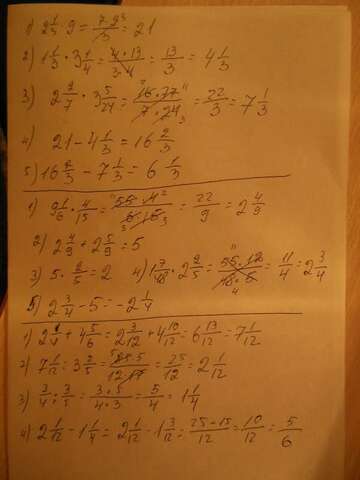 1) 2 1/3 · 9 = 7·9³/3 = 21
2) 1 1/3 · 3 1/4 = 4·13/3·4 = 13/3 = 4 1/3
3) 2 2/7 · 3 5/24 = 16·77/7·24 = 22/3 = 7 1/3
4) 21 - 4 1/3 = 16 2/3
5) 16 2/3 - 7 1/3 = 6 1/3
1) 9 1/6 · 4/15 = 55·4/6·15 = 22/9 = 2 4/9
2) 2 4/9 + 2 5/9 = 5
3) 5 · 2/5 = 2 4) 1 7/48 · 2 2/5 = 55·12/48·5 = 11/4 = 2 3/4
5) 2 3/4 - 5 = -2 1/4
1) 2 1/4 + 4 5/6 = 2 3/12 + 4 10/12 = 6 13/12 = 7 1/12
2) 7 1/12 : 3 2/5 = 85·5/12·17 = 25/12 = 2 1/12
3) 3/4 : 3/5 = 3·5/4·3 = 5/4 = 1 1/4
4) 2 1/12 - 1 1/4 = 2 1/12 - 1 3/12 = 25-15/12 = 10/12 = 5/6